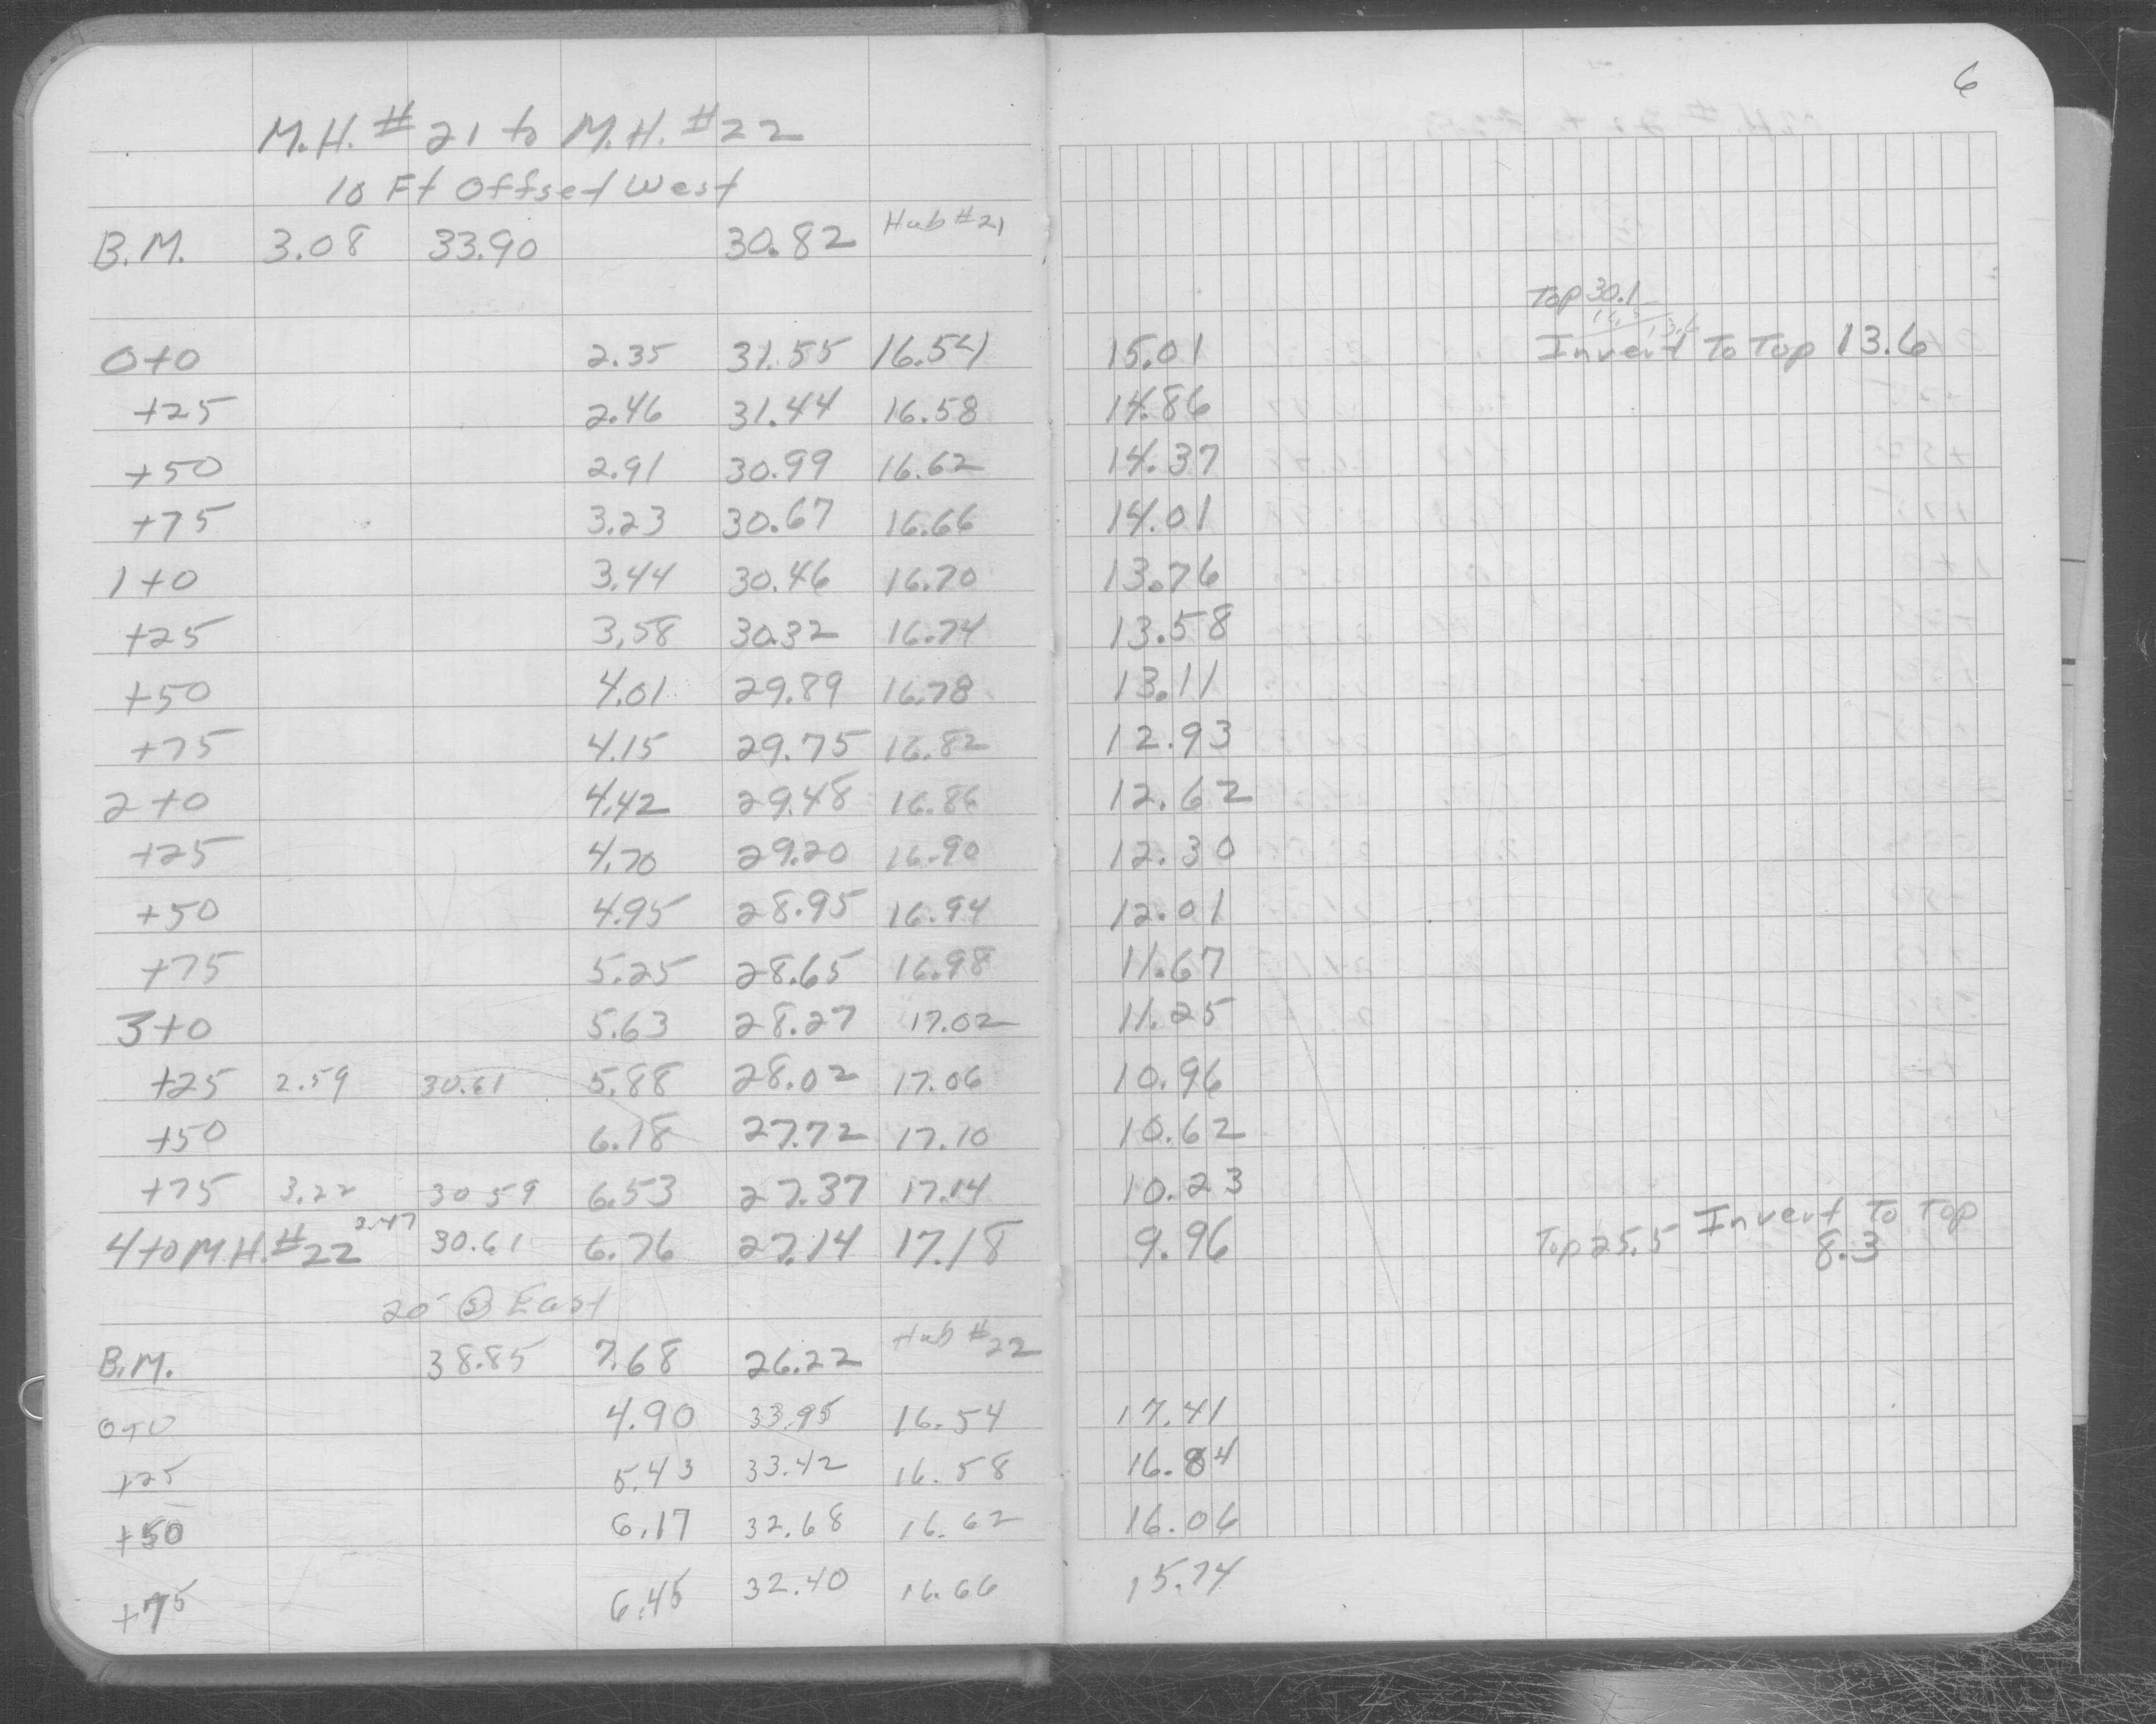 6
M.H. # 21 to M.H. # 22
10 Ft Offset West
B.M. 3.08 33.90 30.82 Hub #21
Top 30.1
0+0 2.35 31.55 16.54 15.01 Invert To Top 13.6
+25 2.46 31.44 16.58 14.86
+50 2.91 30.99 16.62 14.37
+75 3.23 30.67 16.66 14.01
1+0 3.44 30.46 16.70 13.76
+25 3.58 30.32 16.74 13.58
+50 4.01 29.89 16.78 13.11
+75 4.15 29.75 16.82 12.93
2+0 4.42 29.48 16.86 12.62
+25 4.70 29.20 16.90 12.30
+50 4.95 28.95 16.94 12.01
+75 5.25 28.65 16.98 11.67
3+0 5.63 28.27 17.02 11.25
+25 2.59 30.61 5.88 28.02 17.06 10.96
+50 6.18 27.72 17.10 10.62
+75 3.22 30.59 6.53 27.37 17.14 10.23
4+0 M.H. #22 3.47 30.61 6.76 27.14 17.18 9.96 Top 25.5 Invert To Top 8.3
20' East
B.M. 38.85 7.68 26.22 Hub #22
0+0 4.90 33.95 16.54 17.41
+25 5.43 33.42 16.58 16.84
+50 6.17 32.68 16.62 16.06
+75 6.45 32.40 16.66 15.74